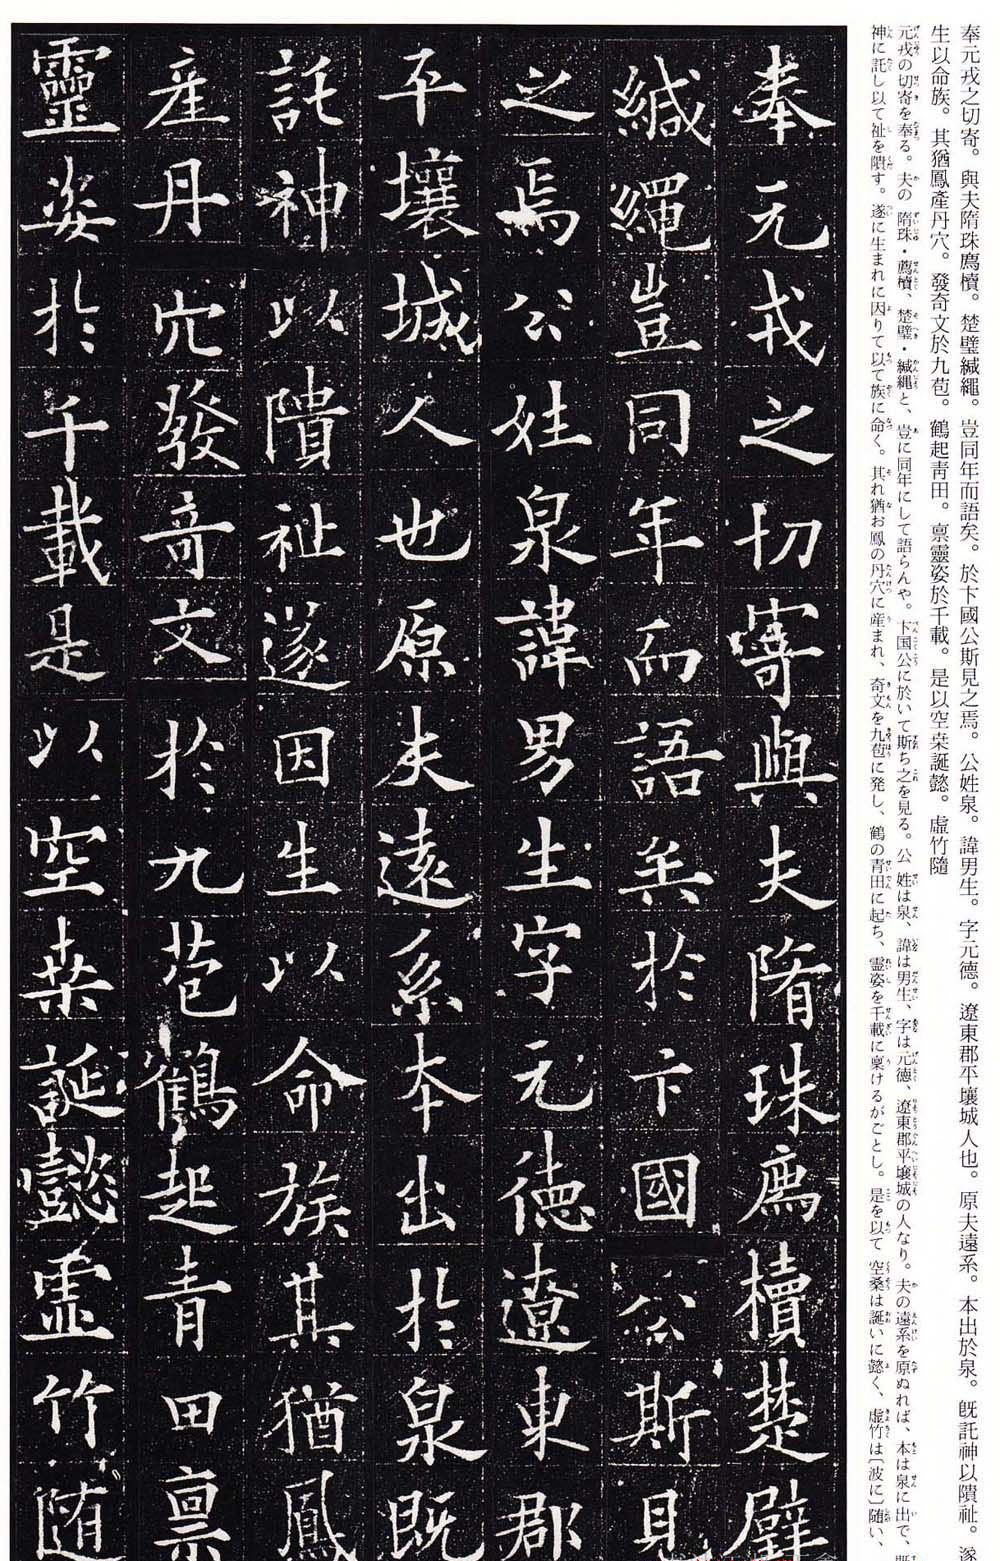 奉元戎之切寄。與夫隋珠廌櫝。楚璧緘繩。豈同年而語矣。於卞國公斯見之焉。公姓泉。諱男生。字元德。遼東郡平壤城人也。原夫遠系。本出於泉。既託神以隤祉。遂
生以命族。其猶鳳產丹穴。發奇文於九苞。鶴起靑田。禀靈姿於千載。是以空桒誕懿。虛竹隨
元戎の切寄を奉る。夫の隋珠・廌櫝、楚璧・緘繩と、豈に同年にして語らんや。卞国公に於いて斯ち之を見る。公 姓は泉、諱は男生、字は元徳、遼東郡平壌城の人なり。夫の遠系を原ぬれば、本は泉に出で、既
神に託し以て祉を隤す。遂に生まれに因りて以て族に命く。其れ猶お鳳の丹穴に産まれ、奇文を九苞に発し、鶴の青田に起ち、霊姿を千載に稟けるがごとし。是を以て空桑は誕いに懿く、虚竹は〔波に〕随い、
奉元戎之切寄與夫隋珠廌櫝楚璧
緘繩豈同年而語矣於卞國公斯見
之焉公姓泉諱男生字元德遼東郡
平壤城人也原夫遠系本出於泉既
託神以隤祉遂因生以命族其猶鳳
產丹穴發奇文於九苞鶴起青田禀
靈姿於千載是以空桒誕懿虛竹隨